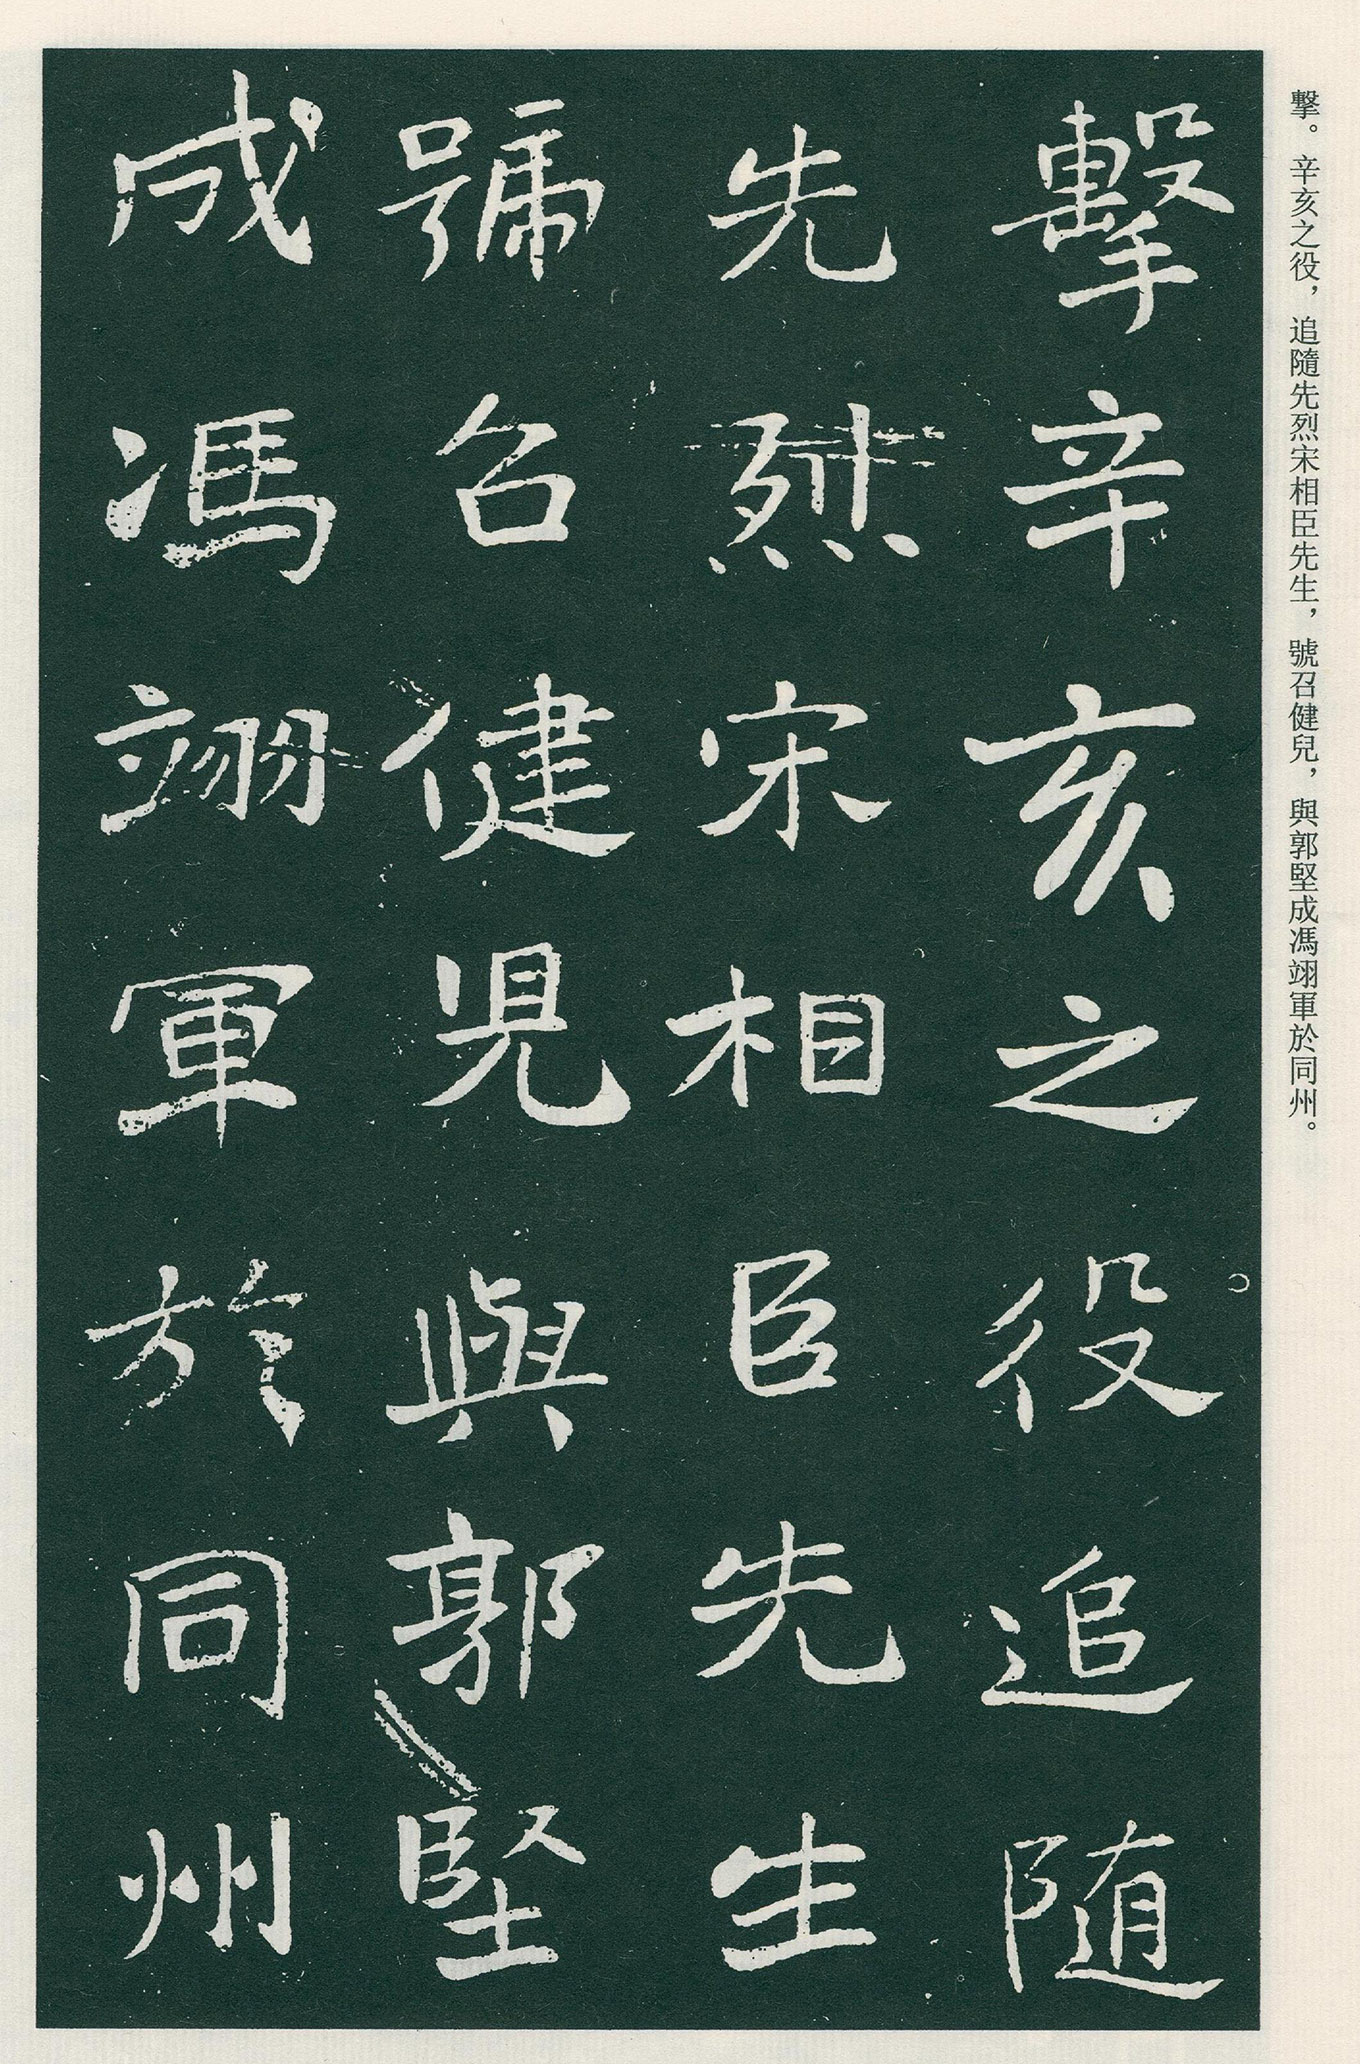 擊。辛亥之役，追隨先烈宋相臣先生，號召健兒，與郭堅成馮翊軍於同州。
擊辛亥之役追随
先烈宋相臣先生
號召健児與郭堅
成馮翊軍於同州